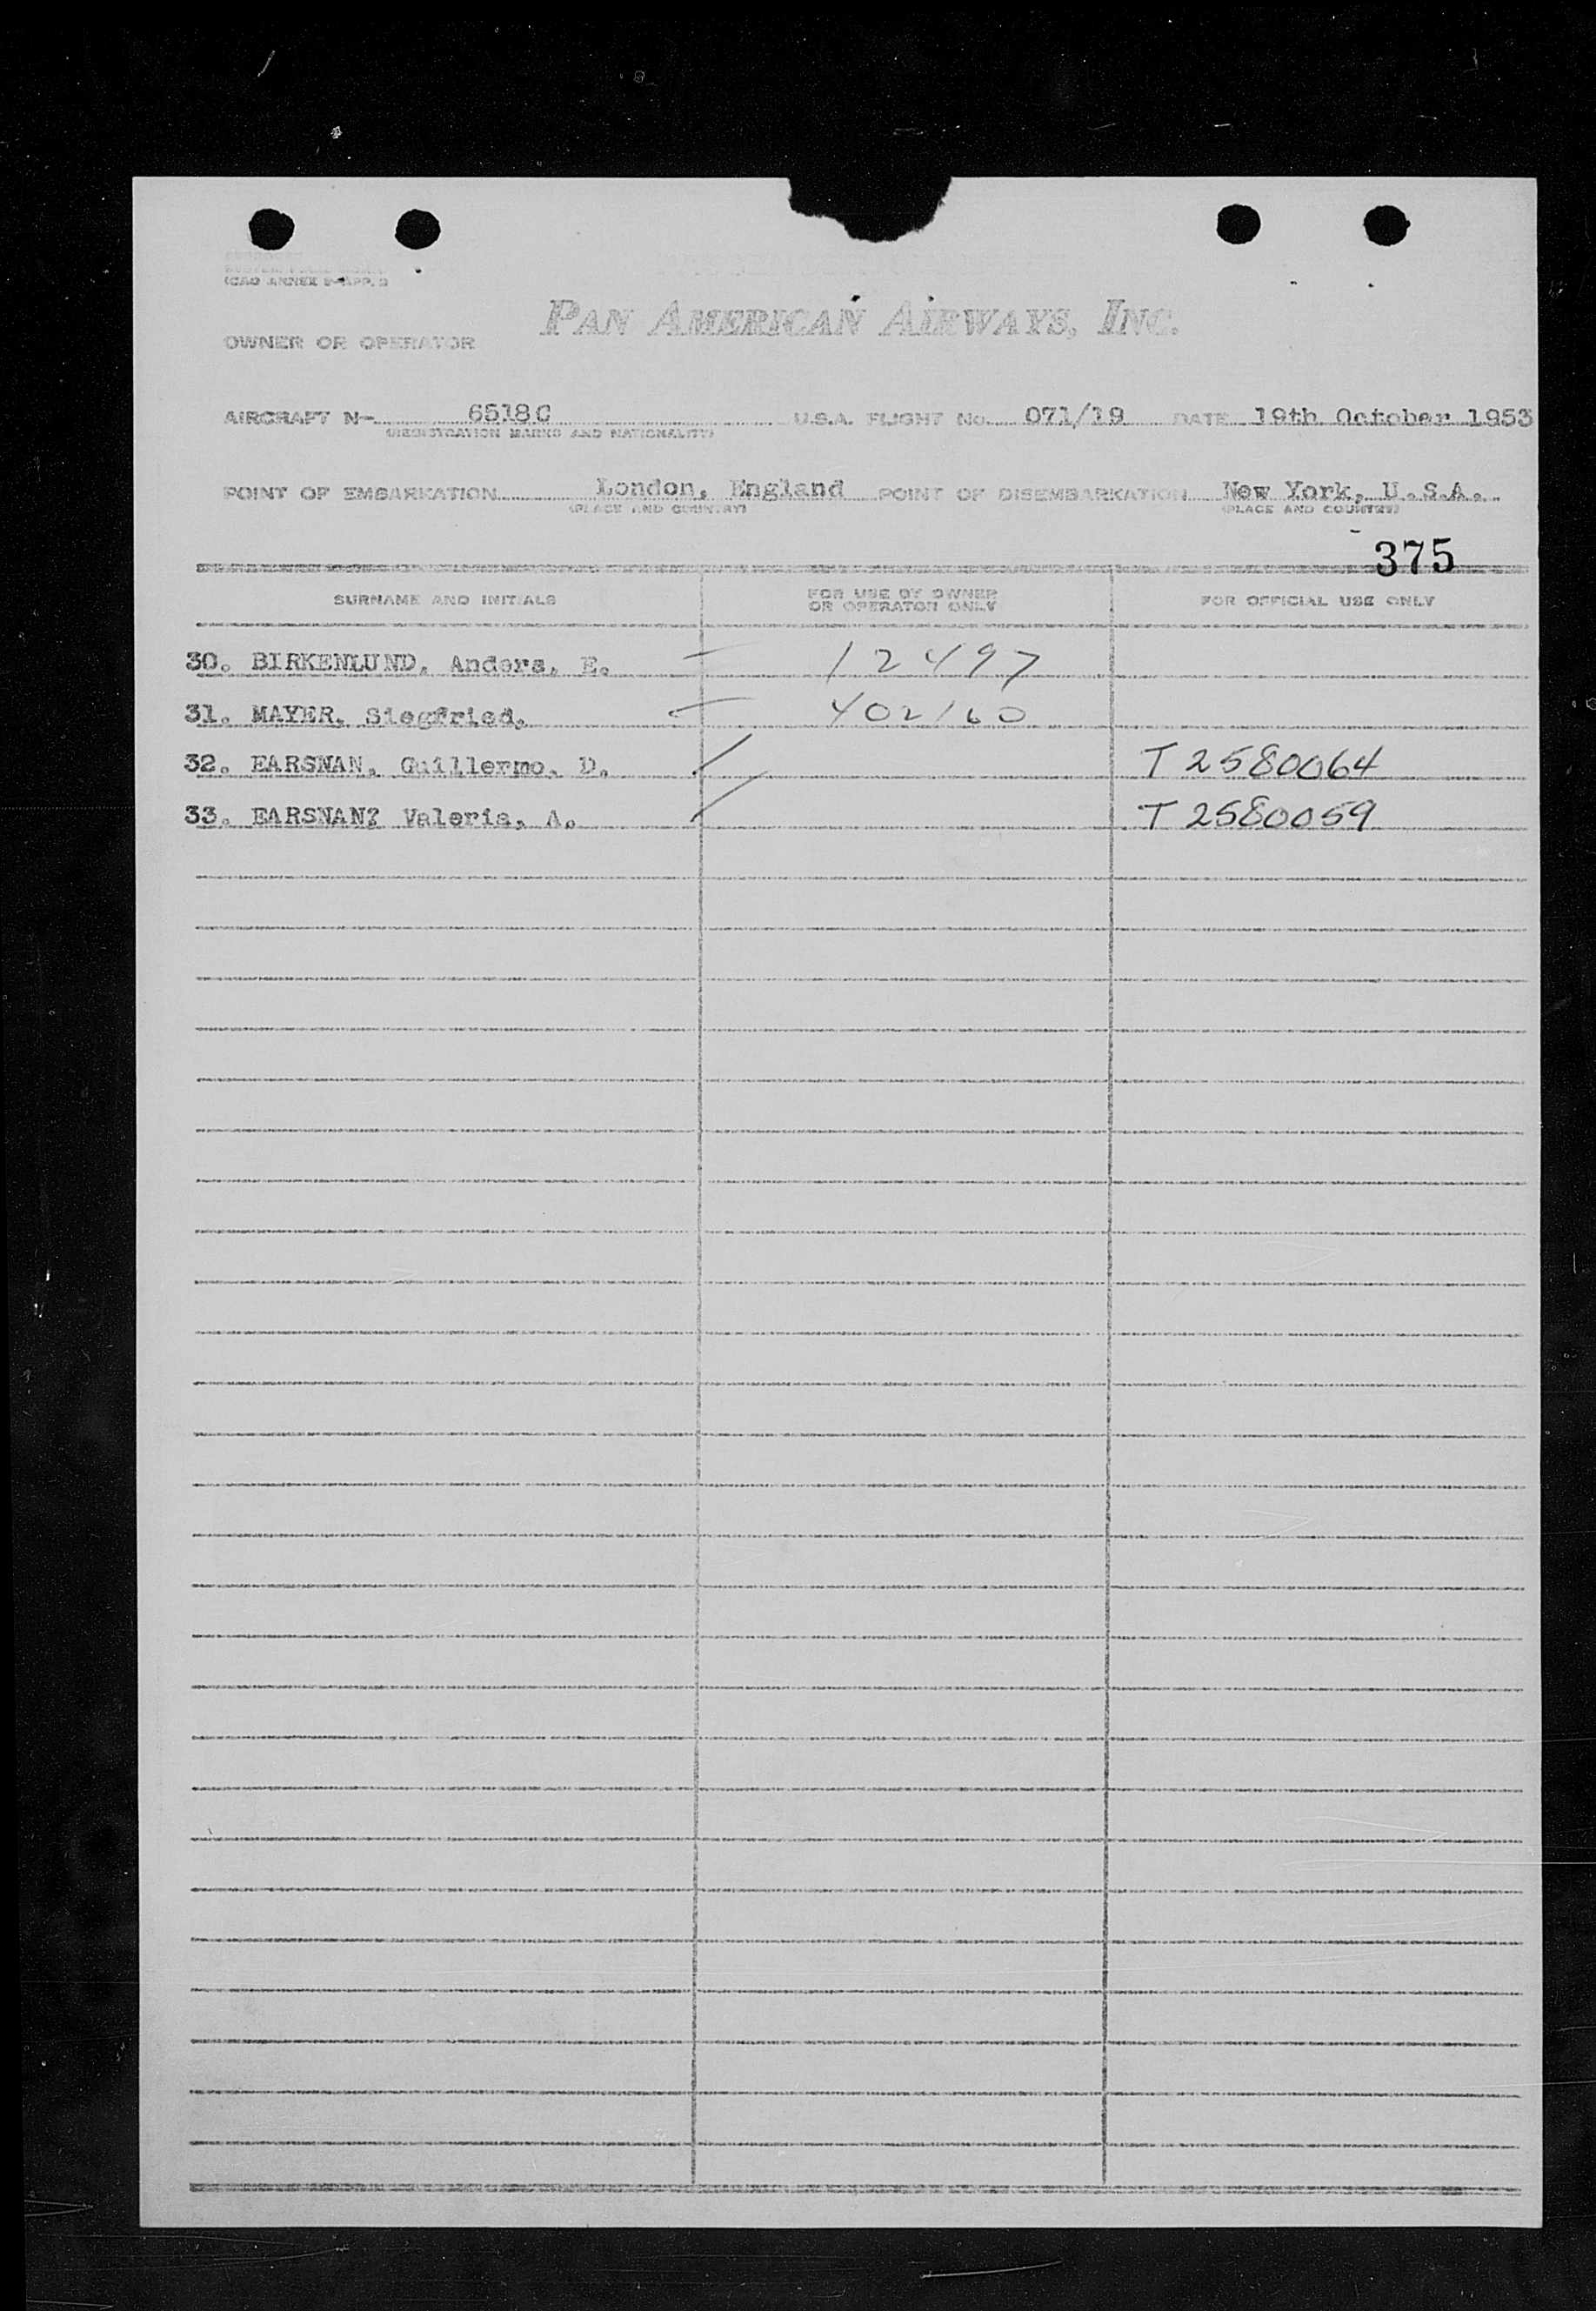 (CAO ANNEX 9-APP. 2)
PAN AMERICAN AIRWAYS, INC.
OWNER OR OPERATOR
AIRCRAFT N- 6518C U.S.A. FLIGHT No. 071/19 DATE 19th October 1953
(REGISTRATION MARKS AND NATIONALITY)
POINT OF EMBARKATION London, England POINT OF DISEMBARKATION New York, U.S.A.
(PLACE AND COUNTRY) (PLACE AND COUNTRY)
375
SURNAME AND INITIALS FOR USE BY OWNER OR OPERATOR ONLY FOR OFFICIAL USE ONLY
30. BIRKENLUND, Anders, E. 12497
31. MAYER, Siegfried. 402160
32. EARSNAN, Guillermo, D. T 2580064
33. EARSNAN? Valeria, A. T 2580059